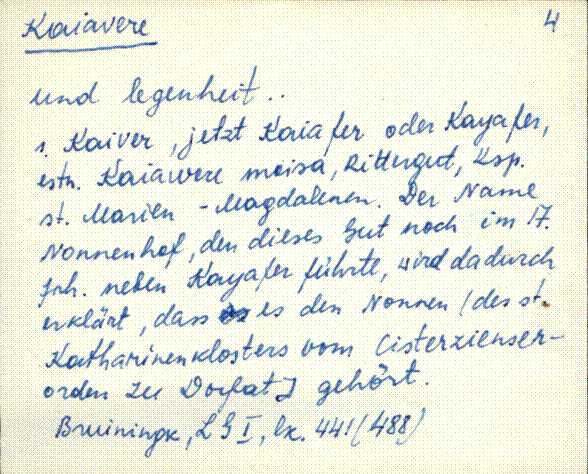 Kaiavere 4
und legenheit..
s. Kaiver, jetzt Kaiafer oder Kayafer,
estn. Kaiawere moisa, Rittergut, Ksp.
st. Marien-Magdalenen. Der Name
Nonnenhof, den dieses Gut noch im 17.
Jrh. neben Kayafer führte, wird dadurch
erklärt, dass es den Nonnen (des st.
Katharinenklosters vom Cisterzienser-
orden zu Dorpat) gehört.
Bruiningk, LG I, lk. 441 (488)